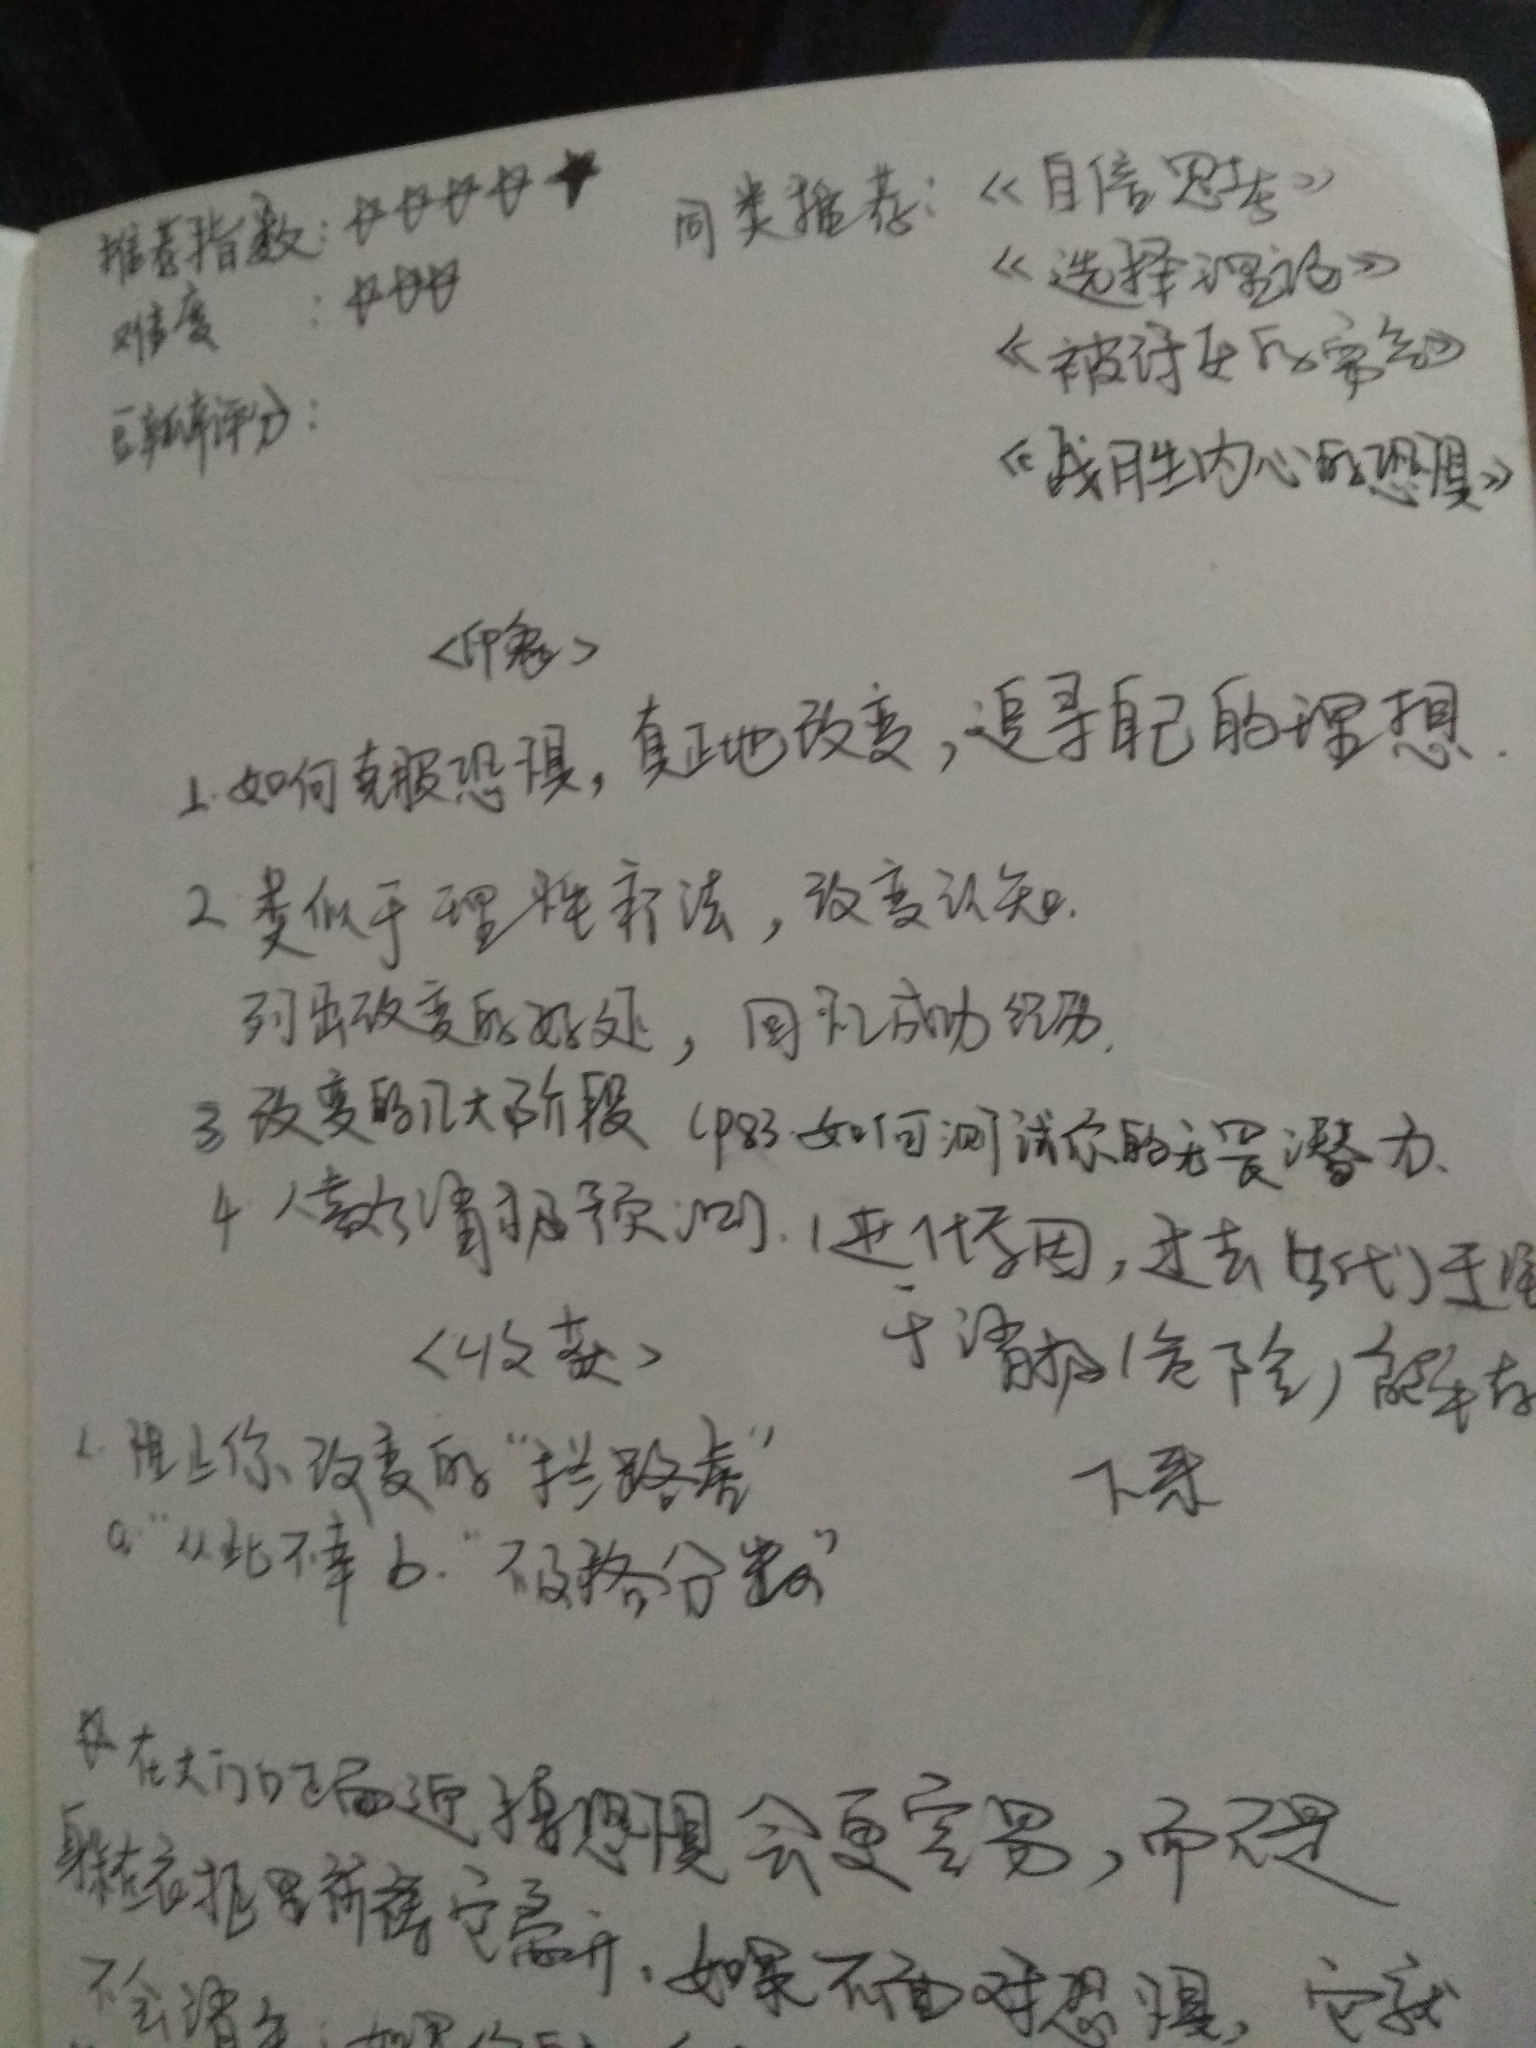 推荐指数：☆☆☆☆★
难度　：☆☆☆
豆瓣评分：
同类推荐：《自信思考》
《选择理论》
《被讨厌的勇气》
《战胜内心的恐惧》
<印象>
1.如何克服恐惧，真正地改变，追寻自己的理想.
2.类似于理性疗法，改变认知.
列出改变的好处，回忆成功经历.
3 改变的几大阶段 (P83.如何测试你的无畏潜力.
4.人喜欢消极预测.（进化原因，过去
于消极(危险)能生存
下来
<收获>
1.阻止你改变的“拦路虎”
a.“从此不幸 b.“不及格分数”
☆在大门口正面迎接恐惧会更容易，而不是
躲在衣柜里祈祷它离开.如果不面对恐惧，它就
不会消失；如果你